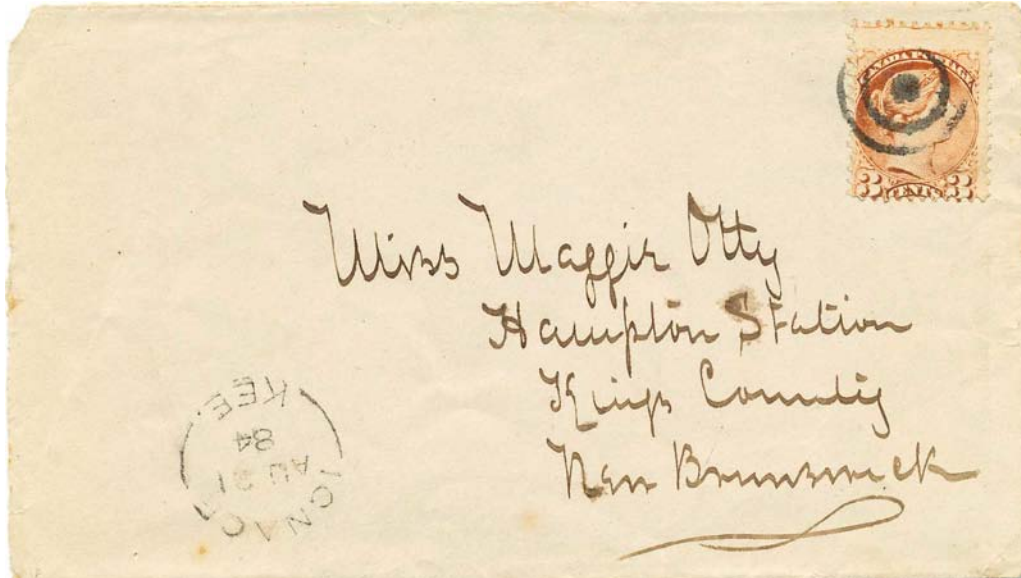 CANADA POSTAGE
3 CENTS 3
Miss Maggie Otty
Hampton Station
Kings County
New Brunswick
AU 21
84
KEE.